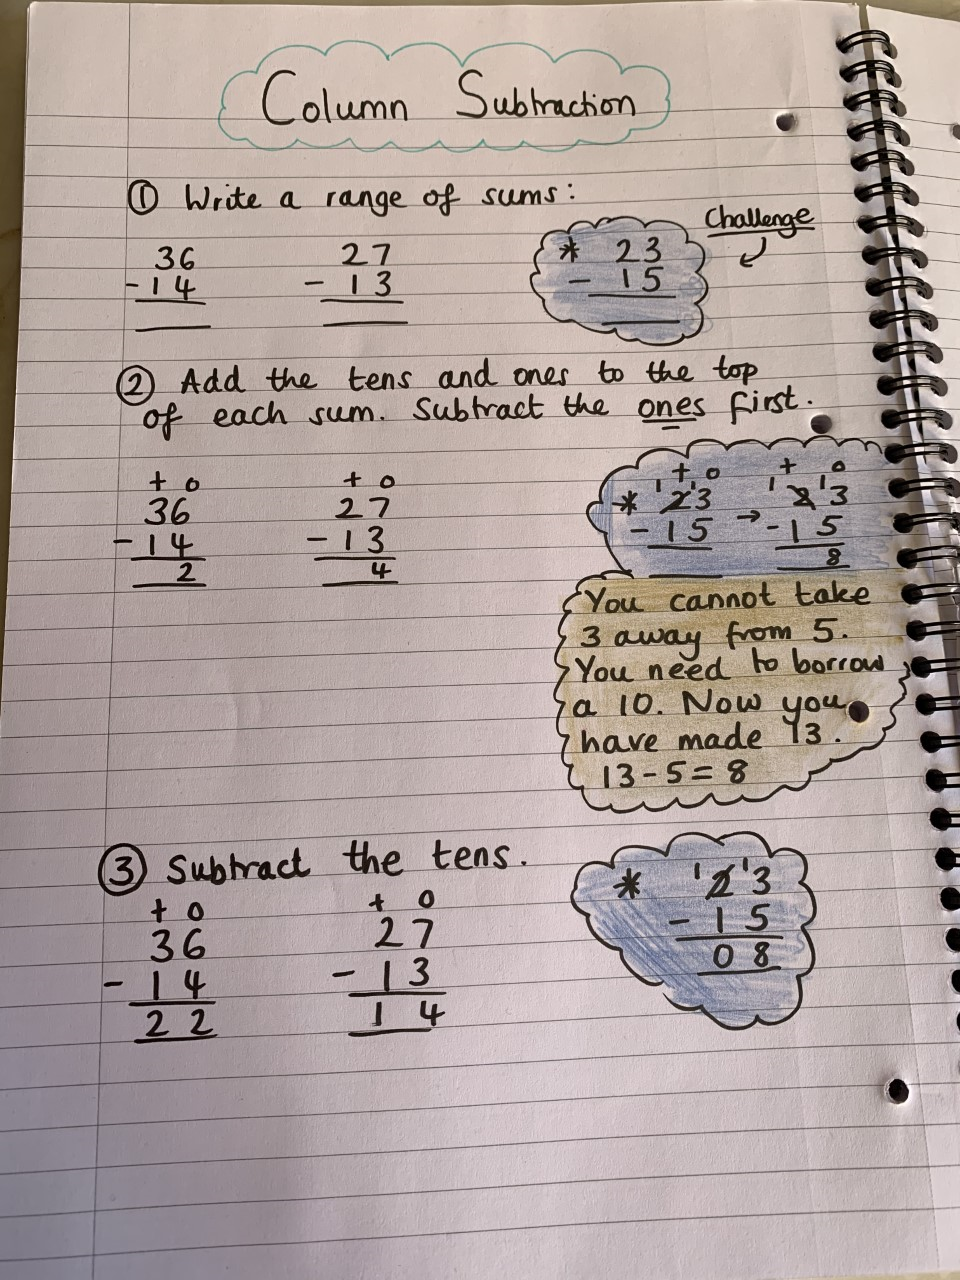 Column Subtraction
① Write a range of sums:
Challenge
36
- 14
27
- 13
* 23
- 15
② Add the tens and ones to the top
of each sum. Subtract the ones first.
t o
36
- 14
2
t o
27
- 13
4
t o
* ¹2¹3
- 15
→
t o
¹2¹3
- 15
8
You cannot take
3 away from 5.
You need to borrow
a 10. Now you
have made 13.
13 - 5 = 8
③ Subtract the tens.
t o
36
- 14
22
t o
27
- 13
14
* ¹2¹3
- 15
08